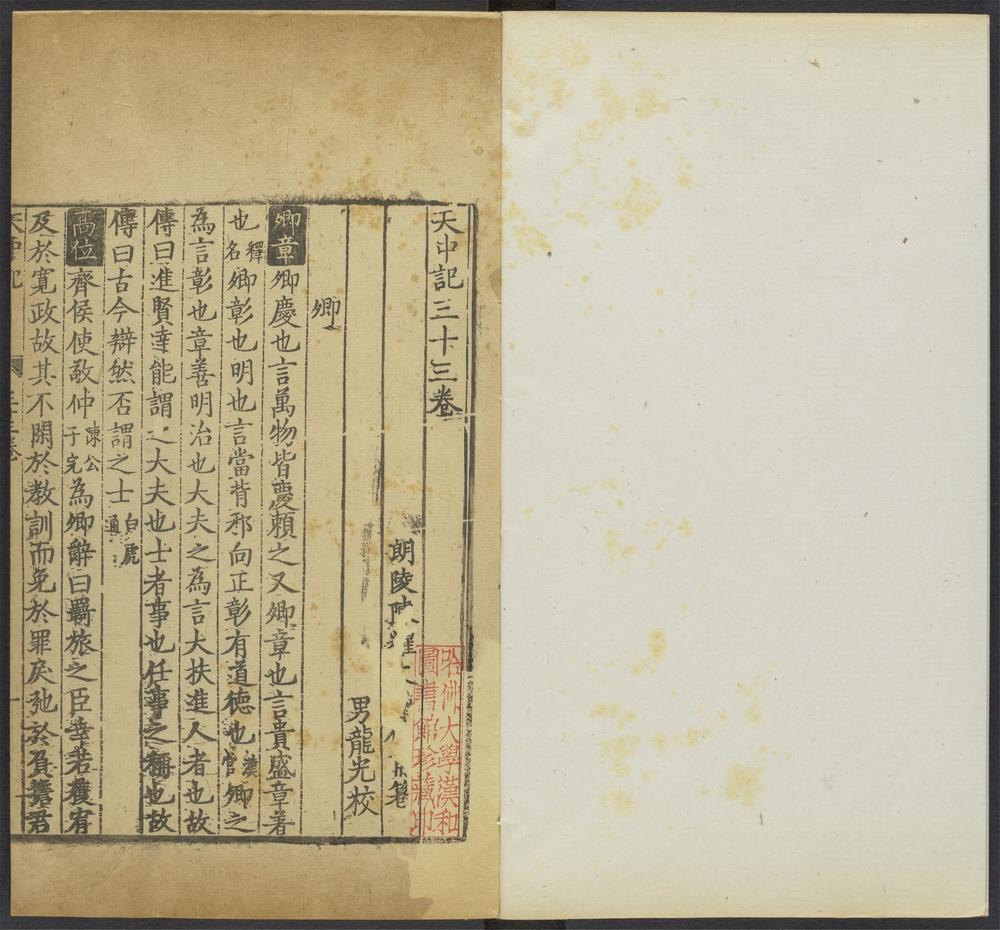 天中記三十三卷
朗陵陳耀
男龍光校
卿
卿章卿慶也言萬物皆慶賴之又卿章也言貴盛章著
也釋名卿彰也明也言當背邪向正彰有道德也漢官卿之
為言彰也章善明治也大夫之為言大扶進人者也故
傳曰進賢達能謂之大夫也士者事也任事之稱也故
傳曰古今辯然否謂之士白虎通
高位齊侯使敬仲陳公子完為卿辭曰羇旅之臣幸若獲宥
及於寬政故其不閑於教訓而免於罪戾弛於負擔君
哈佛大學漢和
圖書館珍藏印